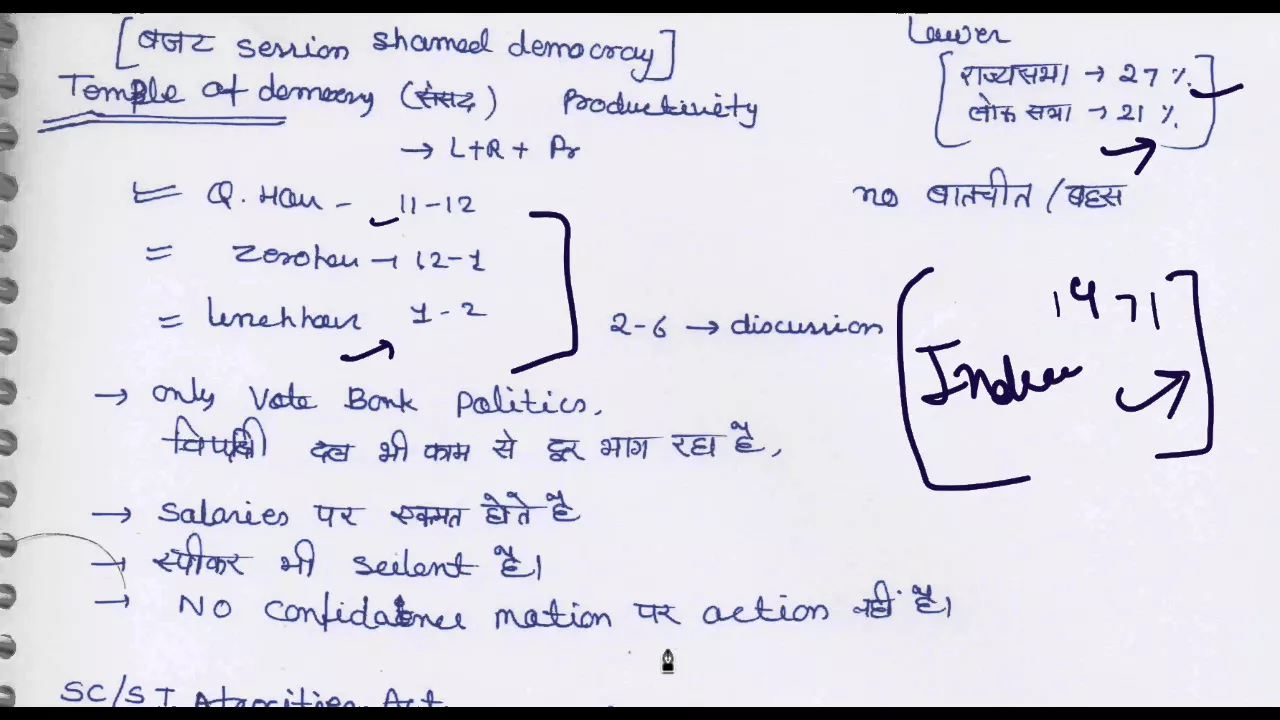 [बजट session shamed democray]
Temple of demoracy (संसद) Productiviety
→ L+R+ Pr
Lower
राज्यसभा → 27 %.
लोक सभा → 21 %.
no बातचीत / बहस
= Q. Hour - 11-12
= Zerohour → 12-1
= lunchhour 1-2
2-6 → discussion
1971
India
→ only Vote Bank Politics,
विपक्षी दल भी काम से दूर भाग रहा है,
→ Salaries पर एकमत होते है
→ स्पीकर भी seilent है।
→ NO confidatence motion पर action नहीं है।
SC/ST Atrocities Act